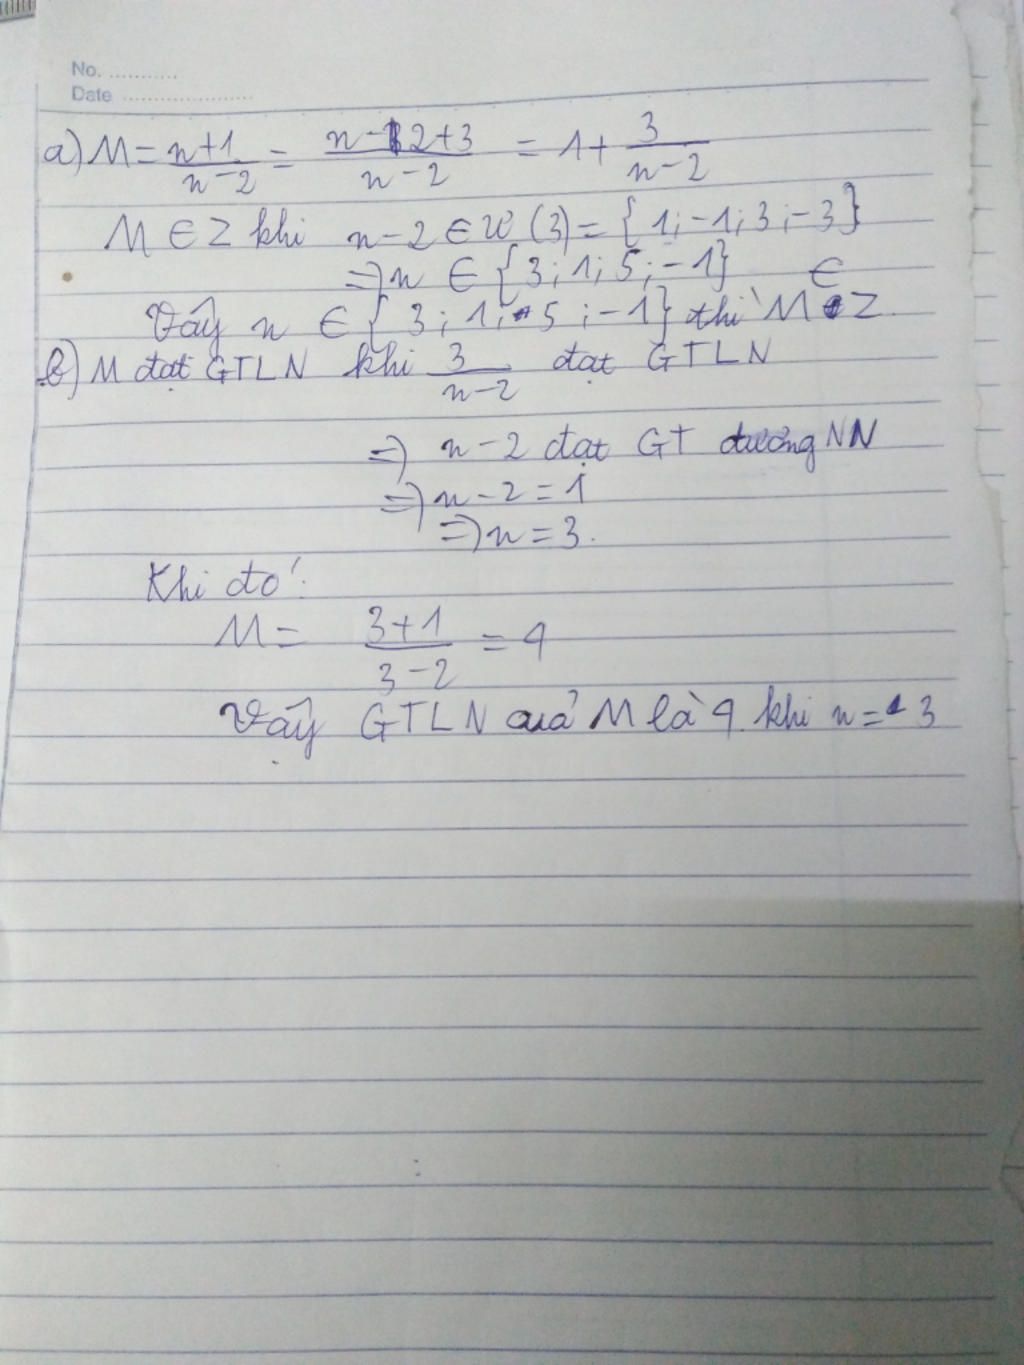 No. ...........
Date ......................
a) M = n+1/n-2 = n-2+3/n-2 = 1+ 3/n-2
M ∈ Z khi n-2 ∈ Ư (3) = {1; -1; 3; -3}
=> n ∈ {3; 1; 5; -1}
Vậy n ∈ {3; 1; 5; -1} thì M ∈ Z.
b) M đạt GTLN khi 3/n-2 đạt GTLN
=> n-2 đạt GT dương NN
=> n-2 = 1
=> n = 3.
Khi đó:
M = 3+1/3-2 = 4
Vậy GTLN của M là 4 khi n = 3